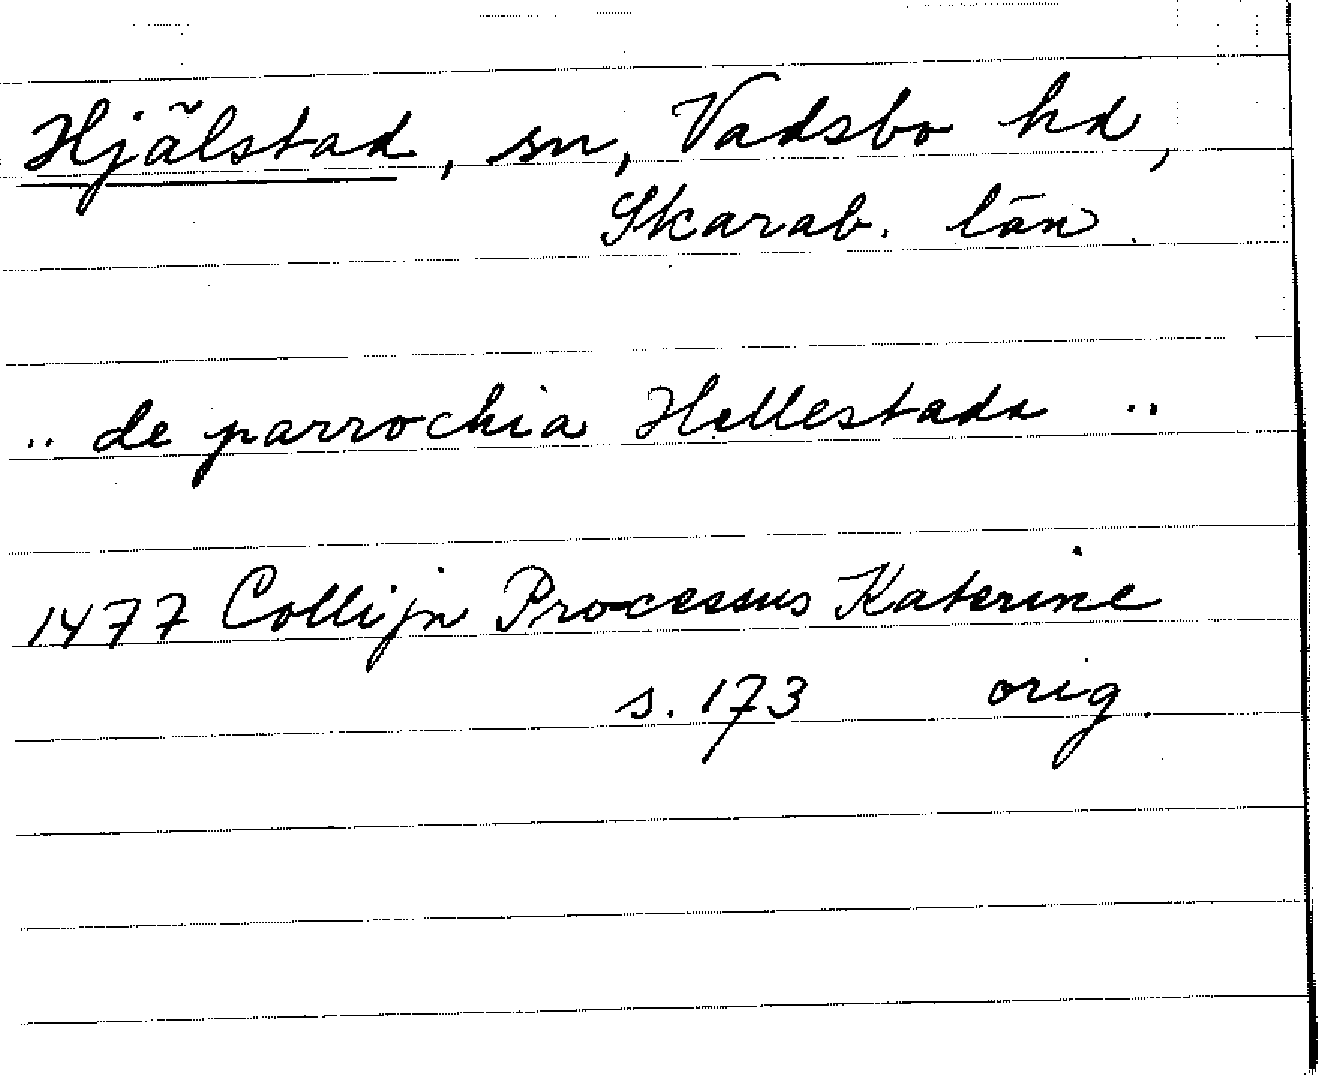 Hjälstad, sn, Vadsbo hd,
Skarab. län.
.. de parrochia Hellestada ..
1477 Collijn Processus Katerine
s. 173 orig.